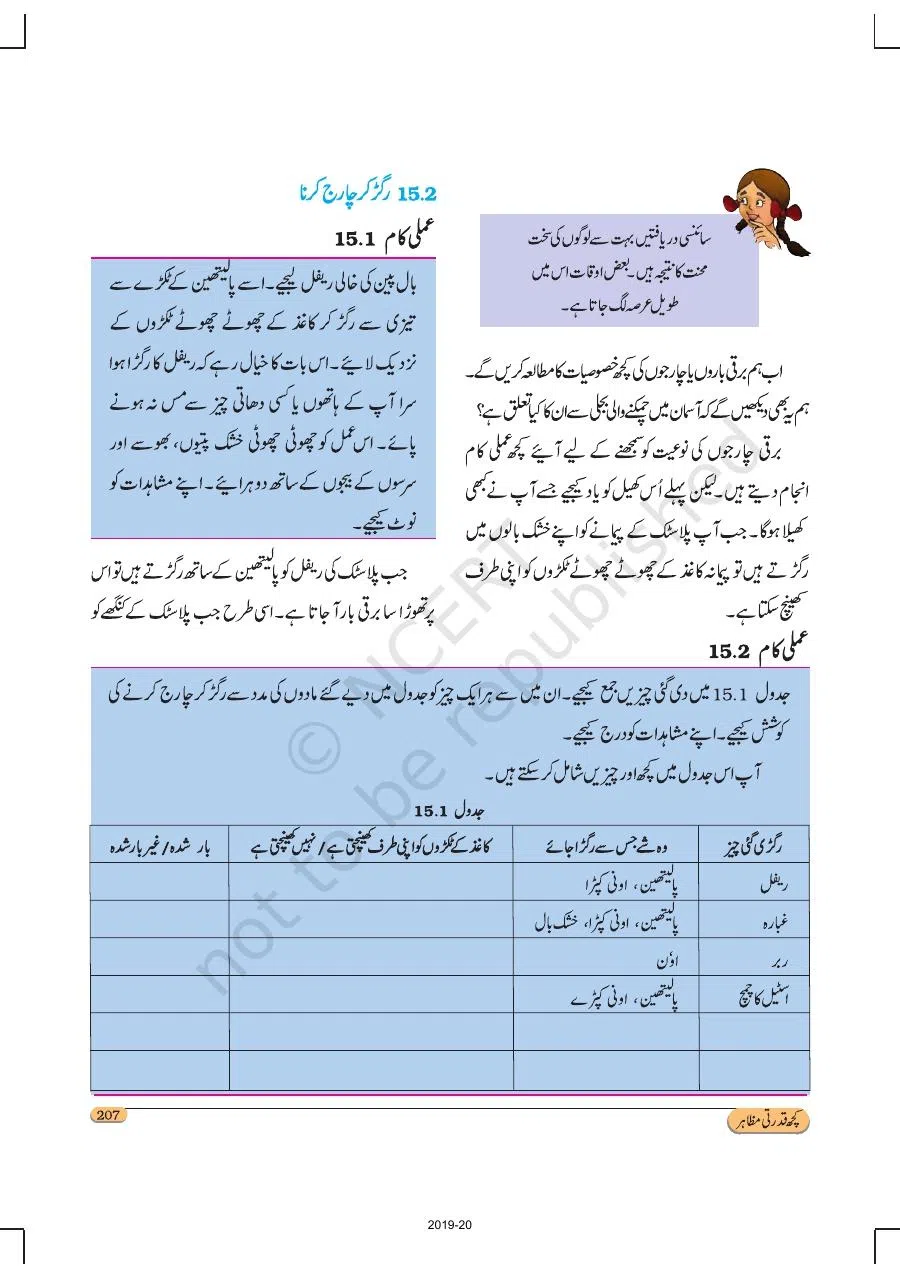 سائنسی دریافتیں بہت سے لوگوں کی سخت
محنت کا نتیجہ ہیں۔ بعض اوقات اس میں
طویل عرصہ لگ جاتا ہے۔
اب ہم برقی باروں یا چارجوں کی کچھ خصوصیات کا مطالعہ کریں گے۔
ہم یہ بھی دیکھیں گے کہ آسمان میں چمکنے والی بجلی سے ان کا کیا تعلق ہے؟
برقی چارجوں کی نوعیت کو سمجھنے کے لیے آیئے کچھ عملی کام
انجام دیتے ہیں۔ لیکن پہلے اُس کھیل کو یاد کیجیے جسے آپ نے کبھی
کھیلا ہوگا۔ جب آپ پلاسٹک کے پیمانے کو اپنے خشک بالوں میں
رگڑتے ہیں تو پیمانہ کاغذ کے چھوٹے چھوٹے ٹکڑوں کو اپنی طرف
کھینچ سکتا ہے۔
15.2 رگڑ کر چارج کرنا
عملی کام 15.1
بال پین کی خالی ریفل لیجیے۔ اسے پالیتھین کے ٹکڑے سے
تیزی سے رگڑ کر کاغذ کے چھوٹے چھوٹے ٹکڑوں کے
نزدیک لایئے۔ اس بات کا خیال رہے کہ ریفل کا رگڑا ہوا
سرا آپ کے ہاتھوں یا کسی دھاتی چیز سے مس نہ ہونے
پائے۔ اس عمل کو چھوٹی چھوٹی خشک پتیوں، بھوسے اور
سرسوں کے بیجوں کے ساتھ دوہرایئے۔ اپنے مشاہدات کو
نوٹ کیجیے۔
جب پلاسٹک کی ریفل کو پالیتھین کے ساتھ رگڑتے ہیں تو اس
پر تھوڑا سا برقی بار آ جاتا ہے۔ اسی طرح جب پلاسٹک کے کنگھے کو
عملی کام 15.2
جدول 15.1 میں دی گئی چیزیں جمع کیجیے۔ ان میں سے ہر ایک چیز کو جدول میں دیے گئے مادوں کی مدد سے رگڑ کر چارج کرنے کی
کوشش کیجیے۔ اپنے مشاہدات کو درج کیجیے۔
آپ اس جدول میں کچھ اور چیزیں شامل کر سکتے ہیں۔
جدول 15.1
رگڑی گئی چیز وہ شے جس سے رگڑا جائے کاغذ کے ٹکڑوں کو اپنی طرف کھینچتی ہے/نہیں کھینچتی ہے بار شدہ/غیر بار شدہ
ریفل پالیتھین، اونی کپڑا
غبارہ پالیتھین، اونی کپڑا، خشک بال
ربر اوٗن
اسٹیل کا چمچ پالیتھین، اونی کپڑے
207 کچھ قدرتی مظاہر
2019-20
© NCERT
not to be republished